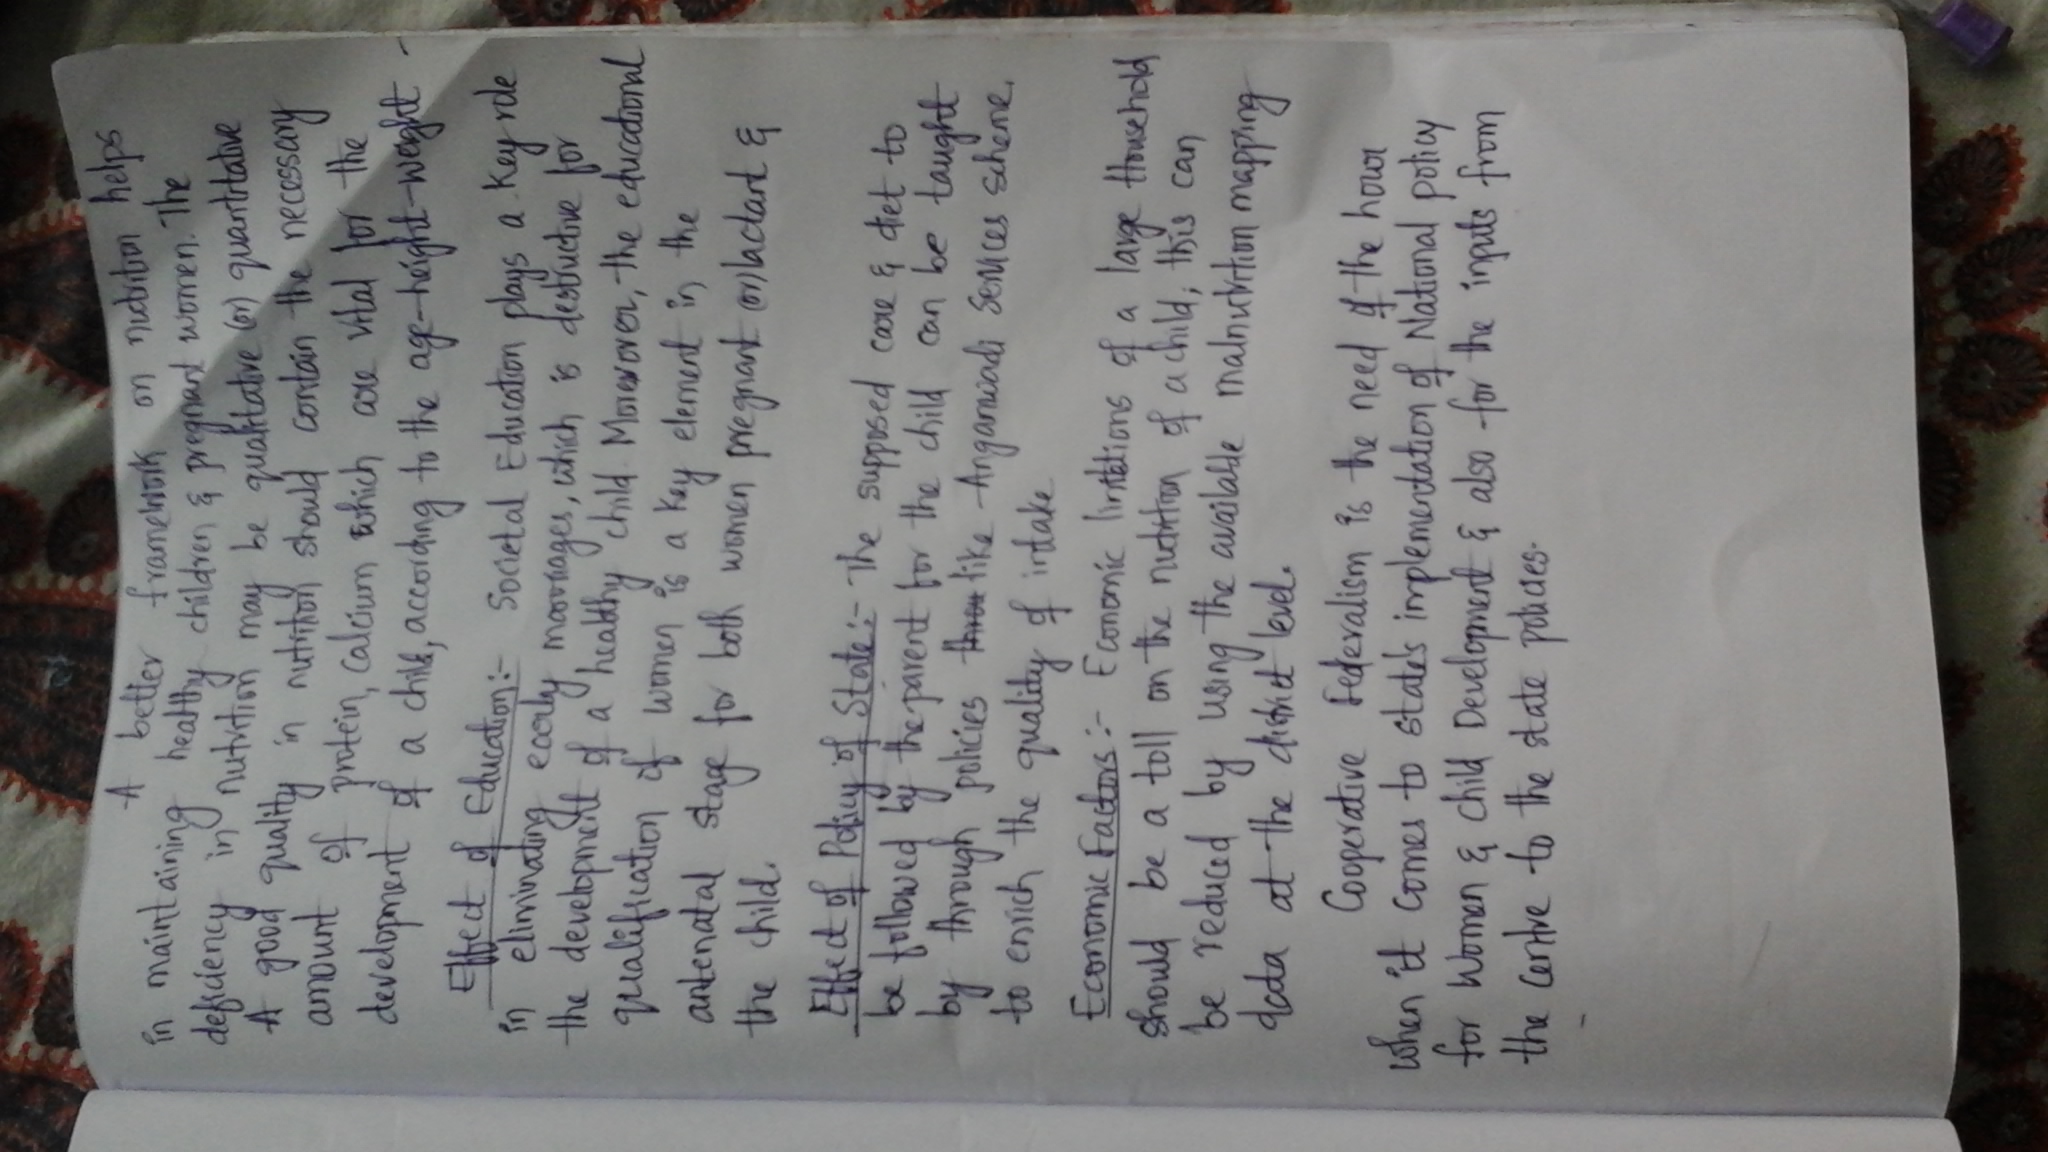 A better framework on nutrition helps
in maintaining healthy children & pregnant women. The
deficiency in nutrition may be qualitative (or) quantitative
A good quality in nutrition should contain the necessary
amount of protein, calcium which are vital for the
development of a child, according to the age-height-weight -
Effect of Education:- Societal Education plays a key role
in eliminating early marriages, which is destructive for
the development of a healthy child. Moreover, the educational
qualification of women is a key element in the
antenatal stage for both women pregnant (or) lactant &
the child.
Effect of Policy of State:- The supposed care & diet to
be followed by the parent for the child can be taught
by through policies like Anganwadi Services scheme.
to enrich the quality of intake
Economic Factors:- Economic limitations of a large Household
should be a toll on the nutrition of a child, this can
be reduced by using the available malnutrition mapping
data at the district level.
Cooperative Federalism is the need of the hour
when it comes to states implementation of National policy
for Women & child Development & also for the inputs from
the centre to the state policies.